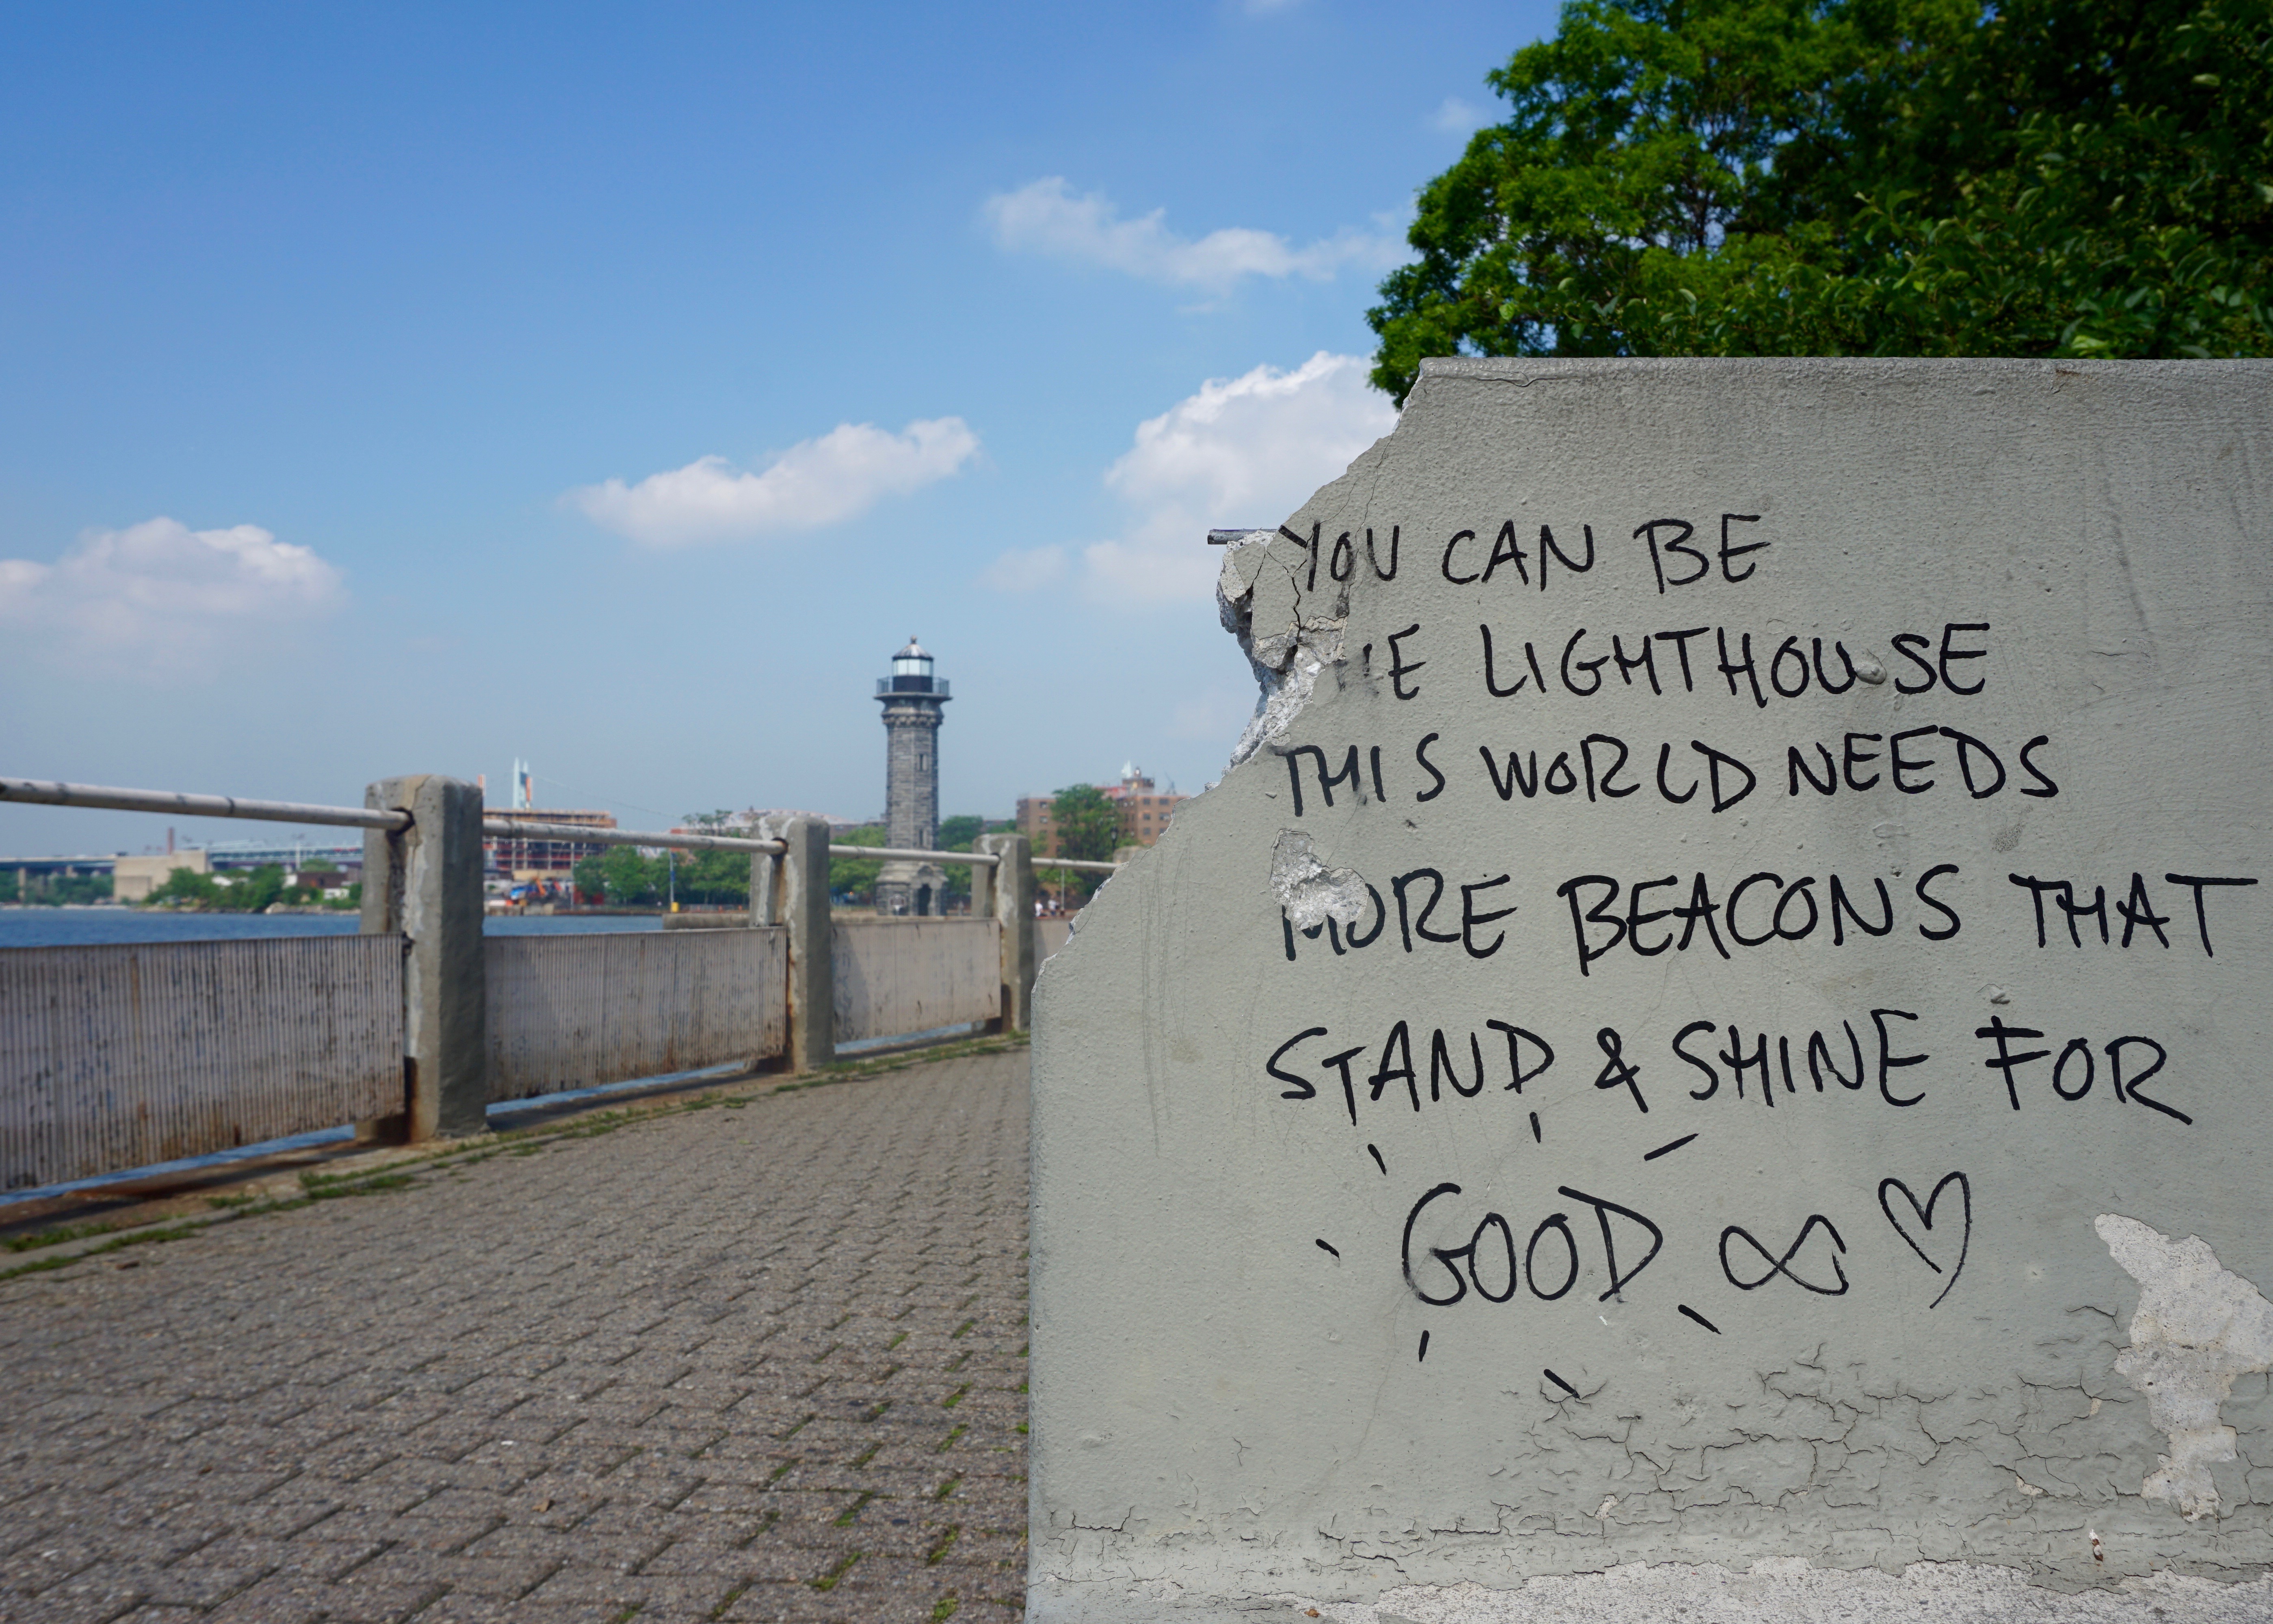 YOU CAN BE
THE LIGHTHOUSE
THIS WORLD NEEDS
MORE BEACONS THAT
STAND & SHINE FOR
GOOD ∞ ♡